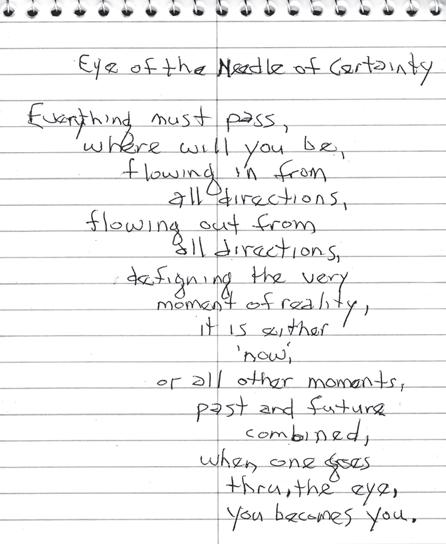 Eye of the Needle of Certainty
Everything must pass,
where will you be,
flowing in from
all directions,
flowing out from
all directions,
defigning the very
moment of reality,
it is either
'now',
or all other moments,
past and future
combined,
when one goes
thru, the eye,
you becomes you.